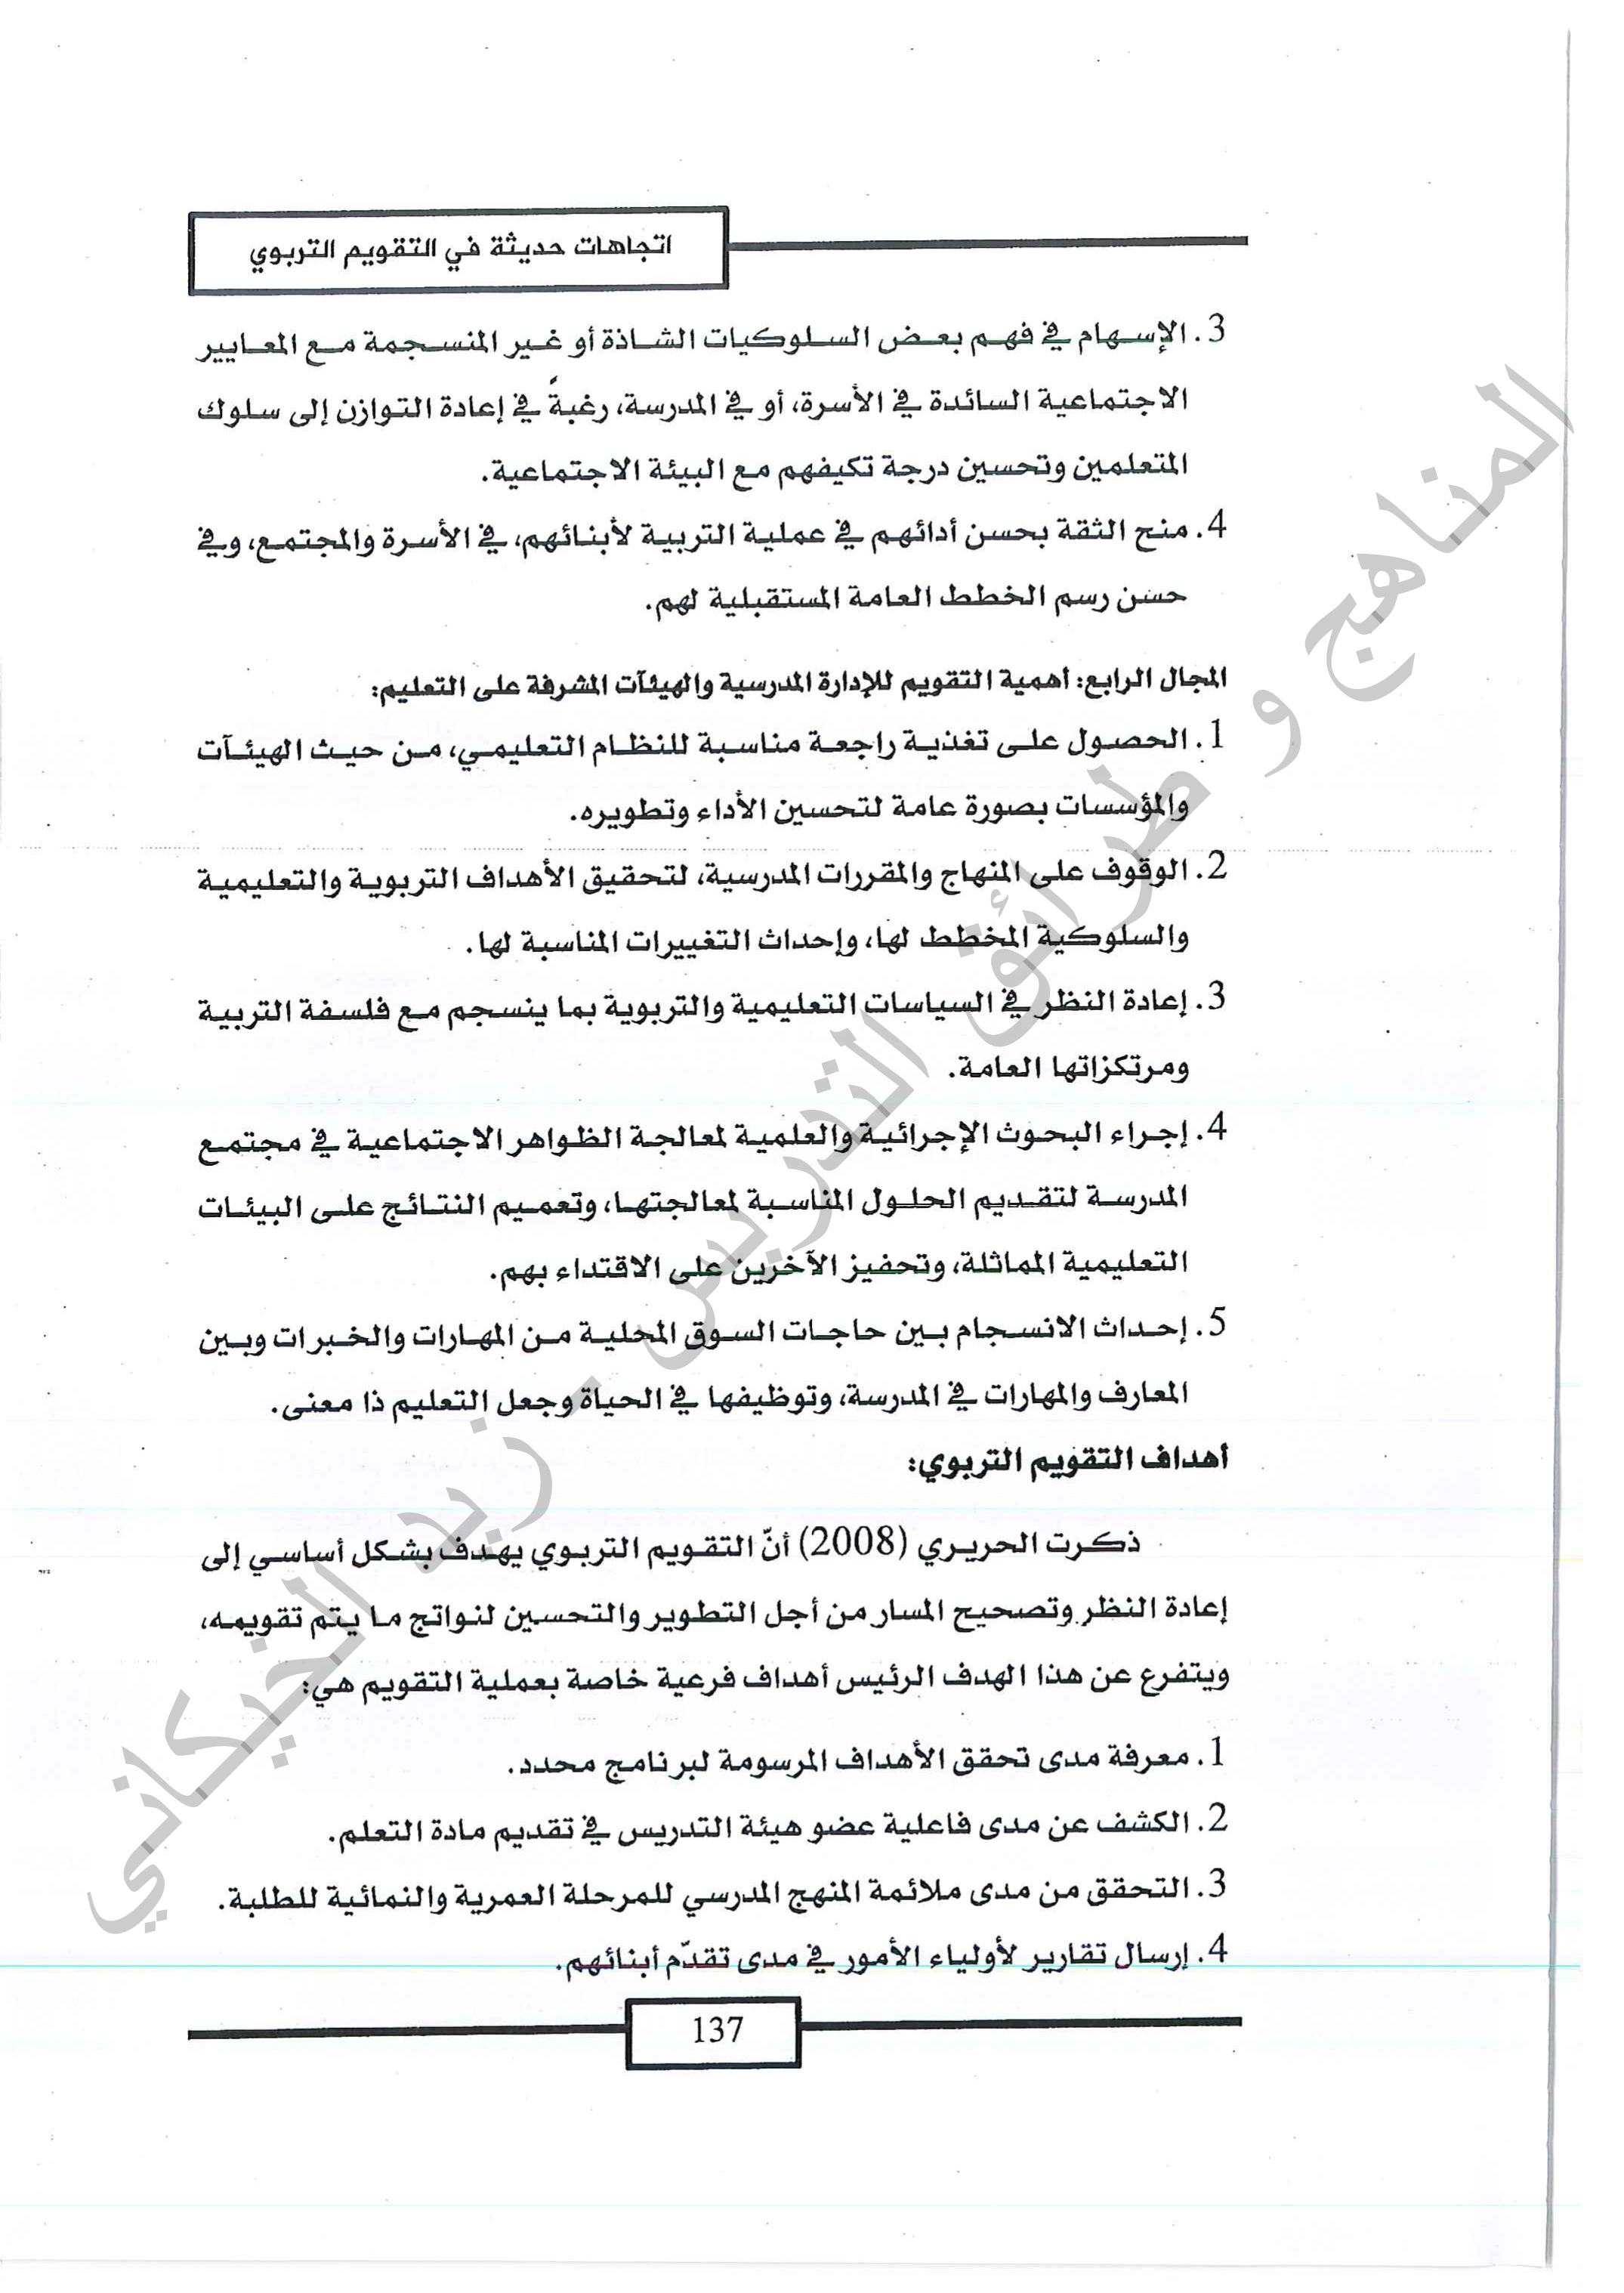 اتجاهات حديثة في التقويم التربوي
3. الإسهام في فهم بعض السلوكيات الشاذة أو غير المنسجمة مع المعايير
الاجتماعية السائدة في الأسرة، أو في المدرسة، رغبةً في إعادة التوازن إلى سلوك
المتعلمين وتحسين درجة تكيفهم مع البيئة الاجتماعية.
4. منح الثقة بحسن أدائهم في عملية التربية لأبنائهم، في الأسرة والمجتمع، وفي
حسن رسم الخطط العامة المستقبلية لهم.
المجال الرابع: أهمية التقويم للإدارة المدرسية والهيئات المشرفة على التعليم:
1. الحصول على تغذية راجعة مناسبة للنظام التعليمي، من حيث الهيئآت
والمؤسسات بصورة عامة لتحسين الأداء وتطويره.
2. الوقوف على المنهاج والمقررات المدرسية، لتحقيق الأهداف التربوية والتعليمية
والسلوكية المخطط لها، وإحداث التغييرات المناسبة لها.
3. إعادة النظر في السياسات التعليمية والتربوية بما ينسجم مع فلسفة التربية
ومرتكزاتها العامة.
4. إجراء البحوث الإجرائية والعلمية لمعالجة الظواهر الاجتماعية في مجتمع
المدرسة لتقديم الحلول المناسبة لمعالجتها، وتعميم النتائج على البيئات
التعليمية المماثلة، وتحفيز الآخرين على الاقتداء بهم.
5. إحداث الانسجام بين حاجات السوق المحلية من المهارات والخبرات وبين
المعارف والمهارات في المدرسة، وتوظيفها في الحياة وجعل التعليم ذا معنى.
أهداف التقويم التربوي:
ذكرت الحريري (2008) أنّ التقويم التربوي يهدف بشكل أساسي إلى
إعادة النظر وتصحيح المسار من أجل التطوير والتحسين لنواتج ما يتم تقويمه،
ويتفرع عن هذا الهدف الرئيس أهداف فرعية خاصة بعملية التقويم هي:
1. معرفة مدى تحقق الأهداف المرسومة لبرنامج محدد.
2. الكشف عن مدى فاعلية عضو هيئة التدريس في تقديم مادة التعلم.
3. التحقق من مدى ملائمة المنهج المدرسي للمرحلة العمرية والنمائية للطلبة.
4. إرسال تقارير لأولياء الأمور في مدى تقدّم أبنائهم.
137
المناهج و طرائق التدريس - زيد الخيكاني